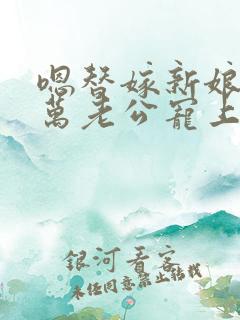 嗯替嫁新娘
萬老公寵上
銀河看客
未任同意禁止转载